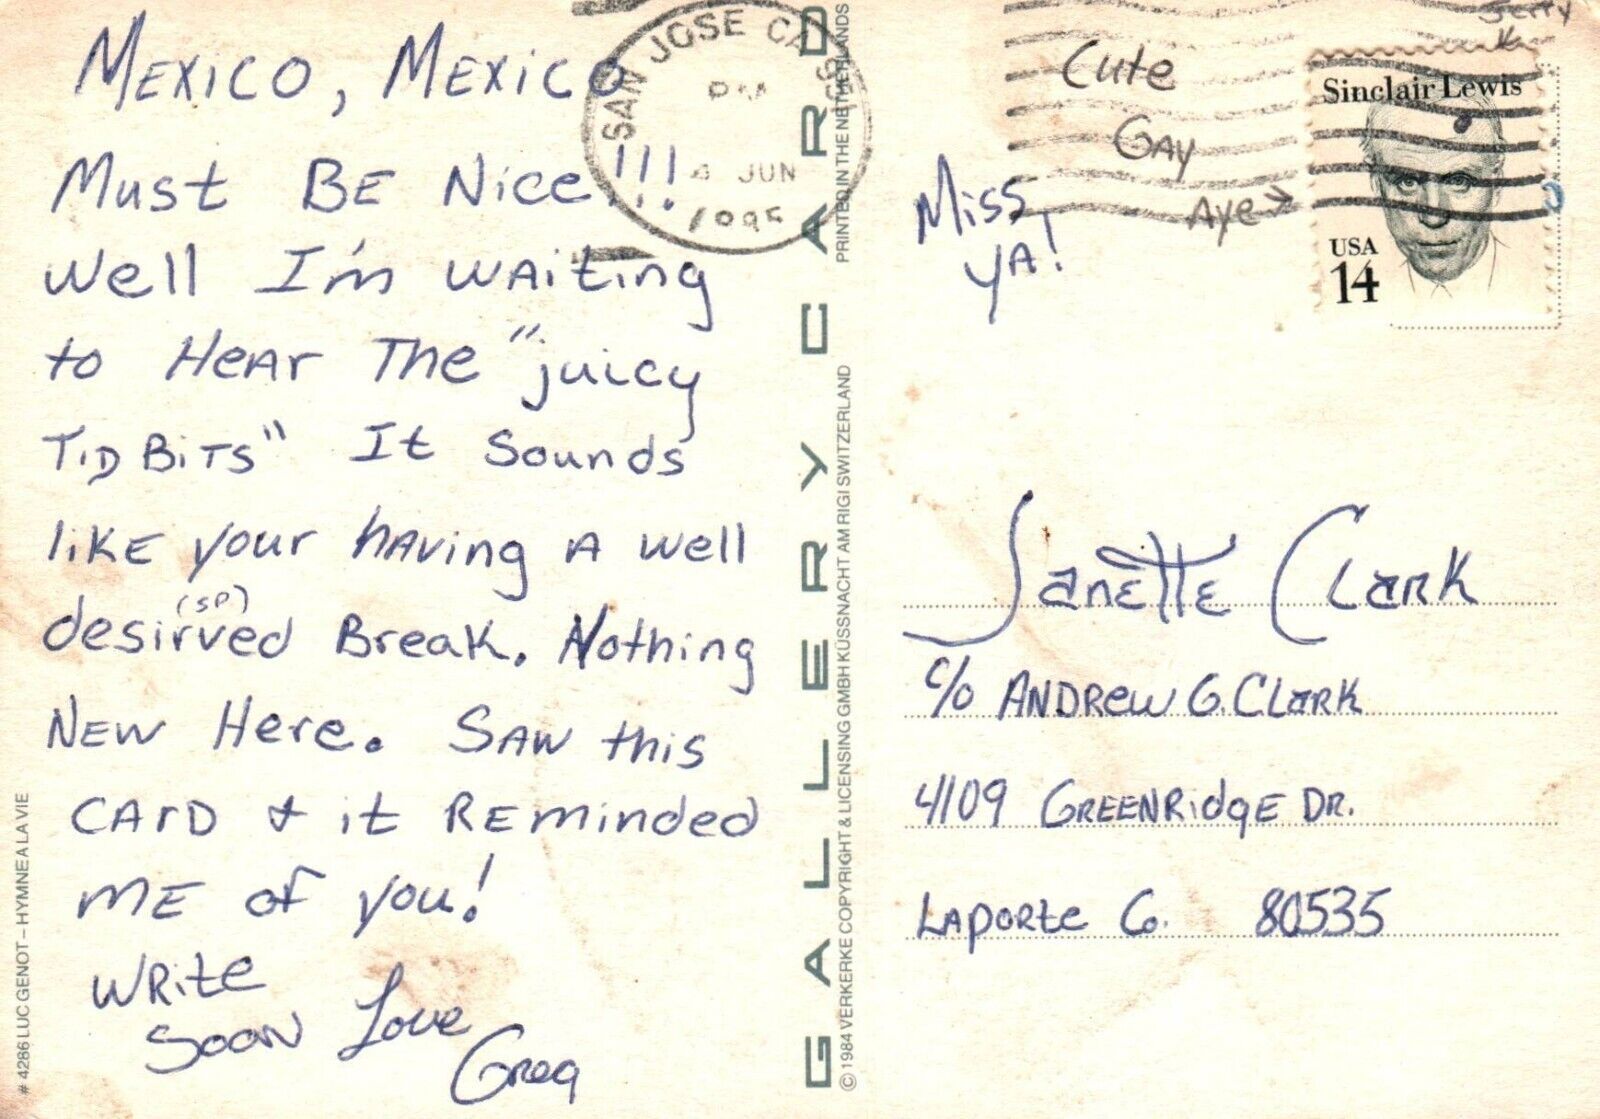 MEXICO, MEXICO
Must BE Nice!!!
Well I'm waiting
to Hear The "juicy
TiDBiTS" It Sounds
like your having a well
desirved (SP) Break. Nothing
NEW Here. SAW this
CARD & it REminded
ME of you!
WRite
Soon Love
Greg
# 4286 LUC GENOT – HYMNE A LA VIE
SAN JOSE CA
PM
4 JUN
GALLERY CARD
© 1984 VERKERKE COPYRIGHT & LICENSING GMBH KÜSSNACHT AM RIGI SWITZERLAND
PRINTED IN THE NETHERLANDS
Miss
YA!
Cute
GAY
Aye →
Sinclair Lewis
USA
14
JanETTE Clark
c/o ANDRew G. Clark
4109 GREENRidge DR.
LAPORte Co. 80535